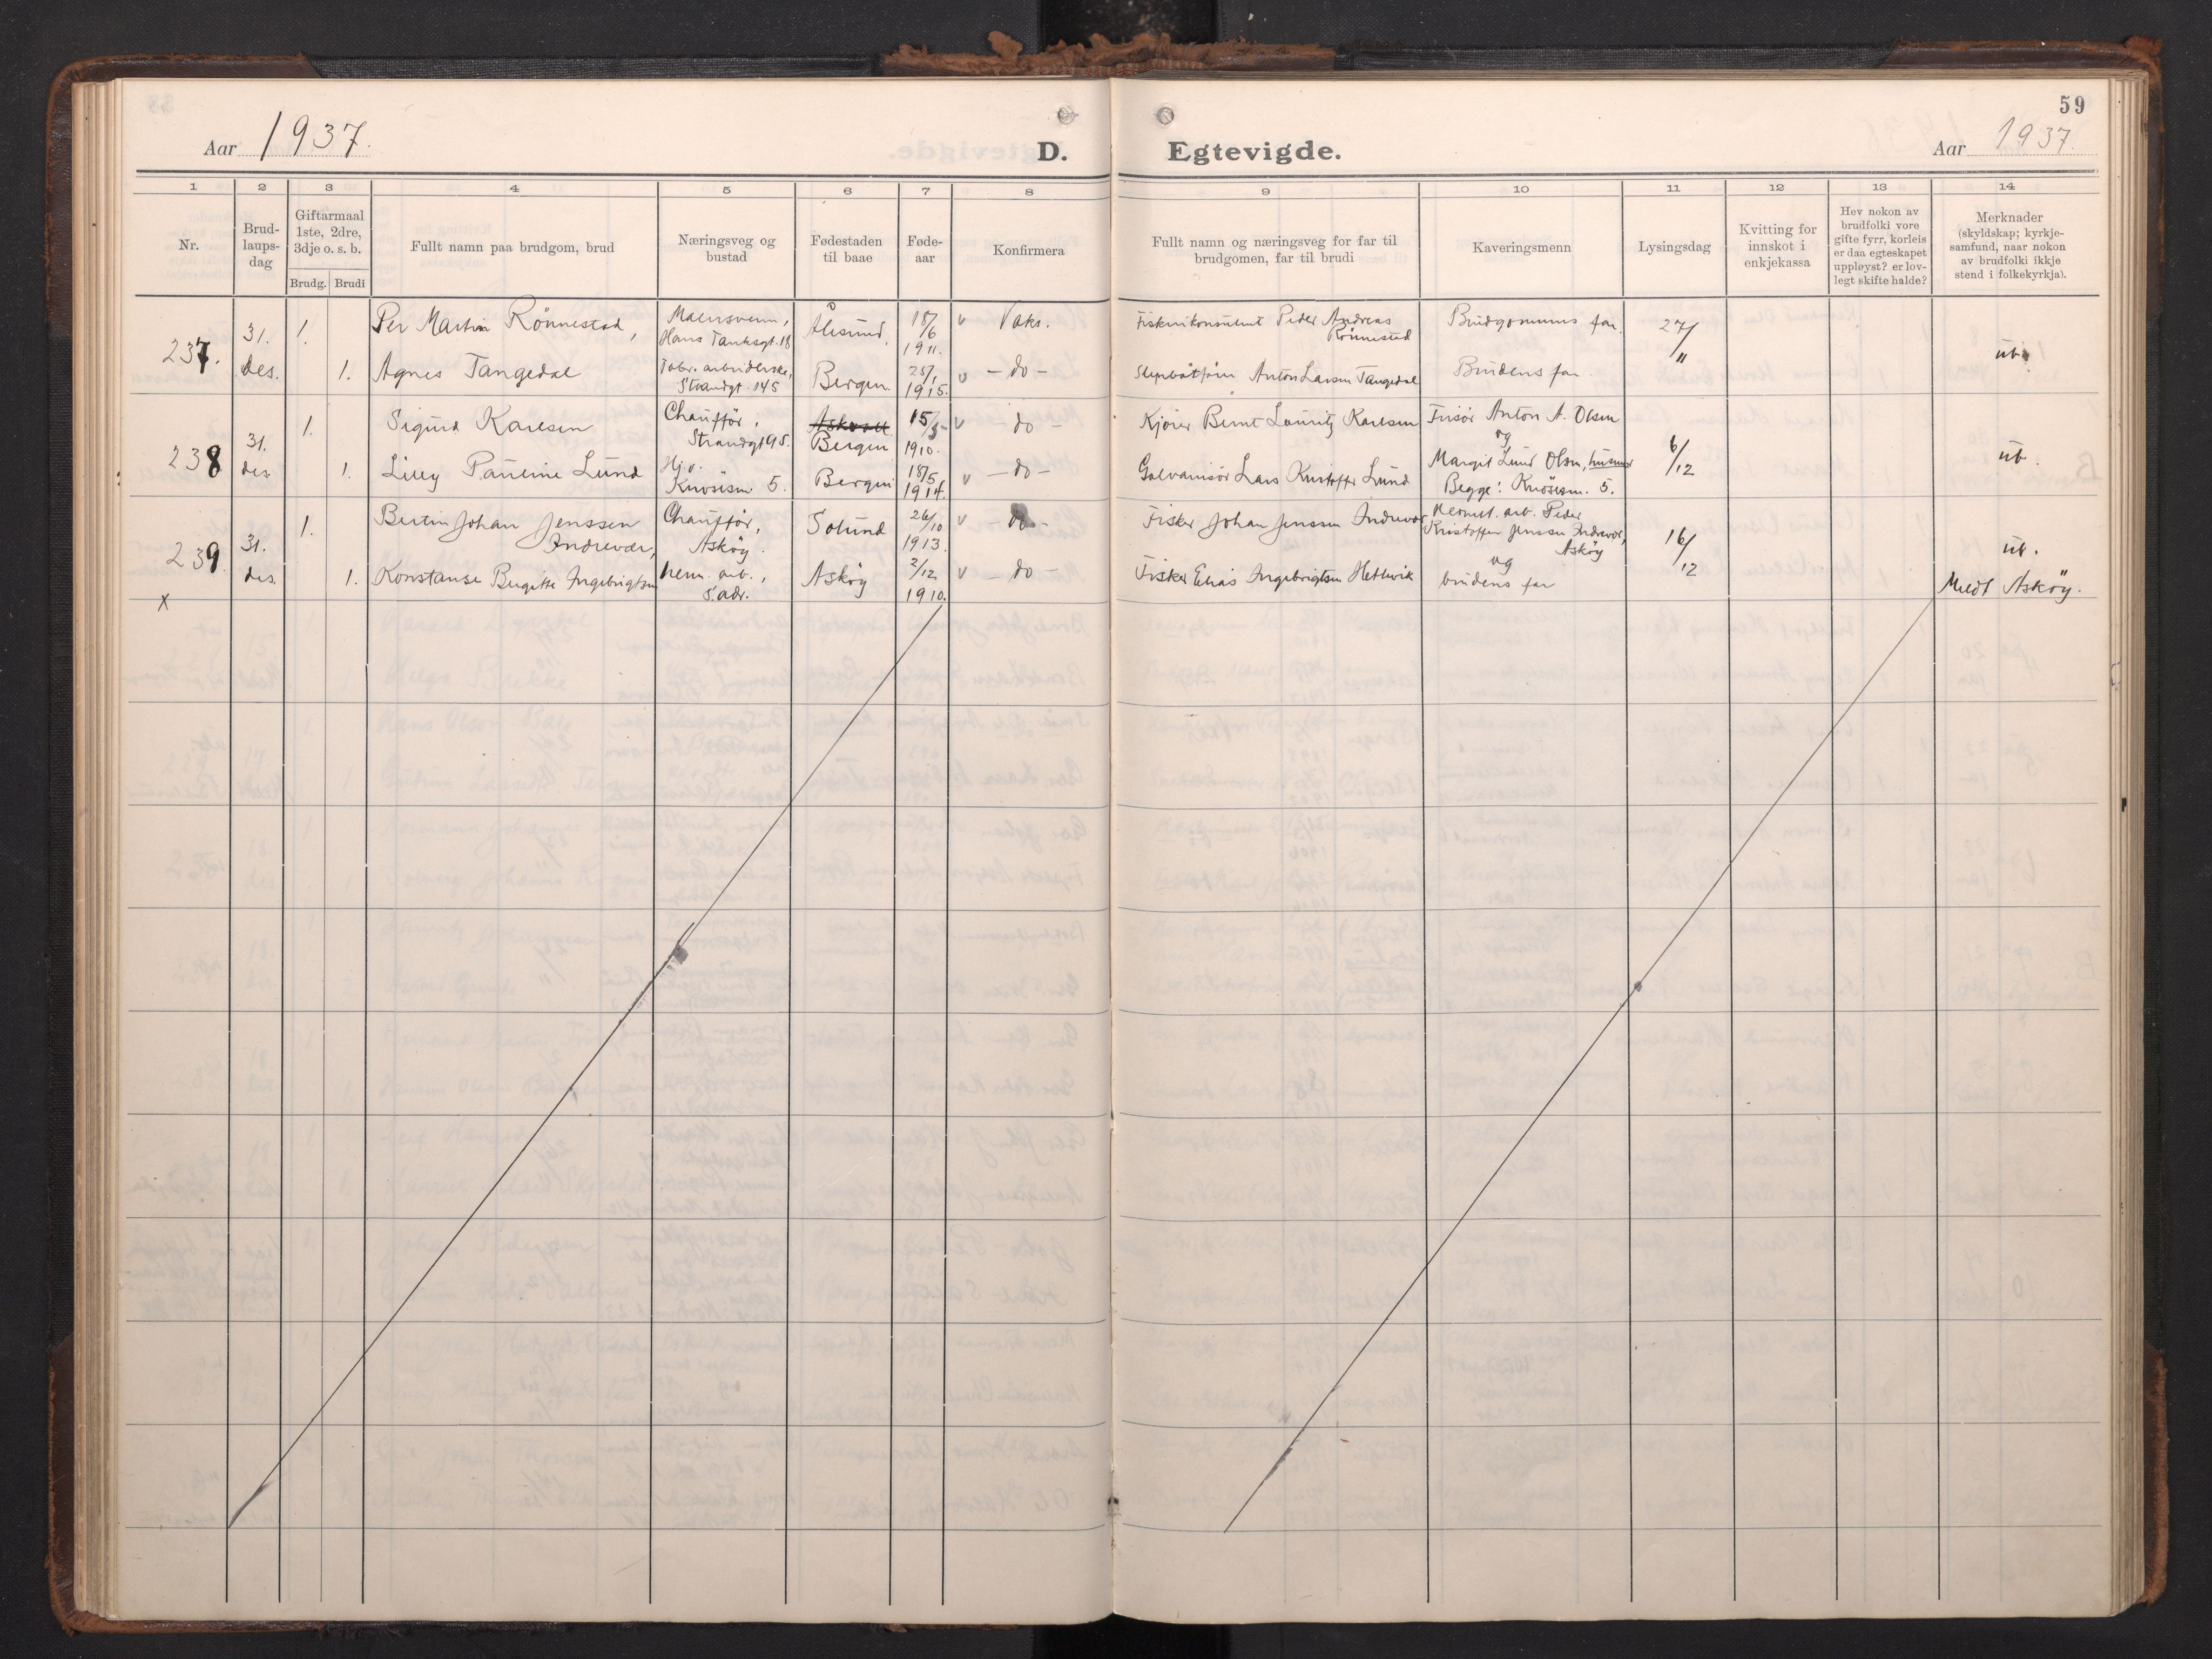 59
Aar 1937. D. Egtevigde. Aar 1937.
1 2 3 4 5 6 7 8 9 10 11 12 13 14
Nr.
Brud-
laups-
dag
Giftarmaal
1ste, 2dre,
3dje o. s. b.
Brudg. Brudi
Fullt namn paa brudgom, brud
Næringsveg og
bustad
Fødestaden
til baae
Føde-
aar
Konfirmera
Fullt namn og næringsveg for far til
brudgomen, far til brudi
Kaveringsmenn
Lysingsdag
Kvitting for
innskot i
enkjekassa
Hev nokon av
brudfolki vore
gifte fyrr, korleis
er daa egteskapet
uppløyst? er lov-
legt skifte halde?
Merknader
(skyldskap; kyrkje-
samfund, naar nokon
av brudfolki ikkje
stend i folkekyrkja).
237.
31.
des.
1.
Per Martin Rönnestad,
Malersvenn,
Hans Tanksgt. 18
Ålesund,
18/6
1911.
v Vaks.
Fiskerikonsulent Peder Andreas
Rönnestad
Brudgommens far.
27/
1.
Agnes Tangedal
Fabr. arbeiderske,
Strandgt. 145
Bergen.
25/1
1915.
v - do -
Anton Larsen Tangedal
Brudens far
"
ub.
238
31.
des.
1.
Sigurd Karlsen
Chauffør,
Strandgt 95.
Askvoll
Bergen
15/5
1910.
v - do -
Kjører Bernt Lauritz Karlsen
Frisør Anton A. Olsen
og
1.
Lilly Pauline Lund
Hj. v.
Knøsesm 5.
Bergen
18/5
1914.
v - do -
Galvanisör Lars Kristoffer Lund
Margit Lund Olsen, husmor
Begge: Knøsesm. 5.
6/12
ub.
239.
31.
des.
1.
Bertin Johan Jenssen
Indrevær,
Chauffør,
Askøy.
Solund
26/10
1913.
v - do -
Fisker Johan Jenssen Indrevær
Hermet. arb. Peder
Kristoffer Jenssen Indrevær,
Askøy
og
16/12
ub.
1.
Konstanse Birgitte Ingebrigtsen
herm. arb.,
s. adr.
Askøy
2/12
1910.
v - do -
Fisker Elias Ingebrigtsen Hetlevik
brudens far
Meldt Askøy.
x